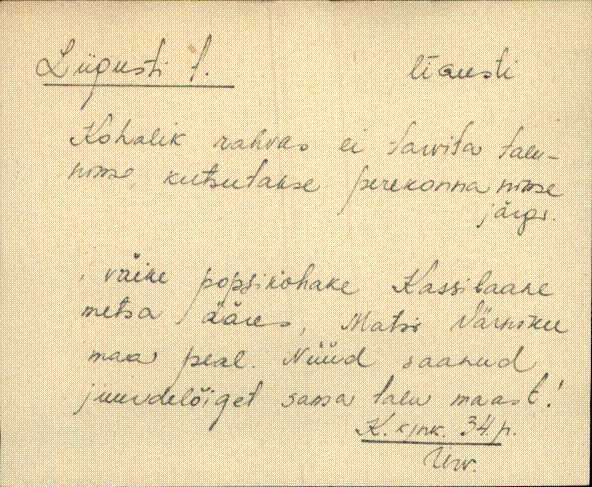 Liigusti t. liigusti
Kohalik rahvas ei tarvita talu-
nime, kutsutakse perekonna nime
järgi.
väike popsikohake Kassilaane
metsa ääres, Matsi Värniku
maa peal. Nüüd saanud
juurdelõiget sama talu maast!
K. kjnk. 34 p.
Urv.